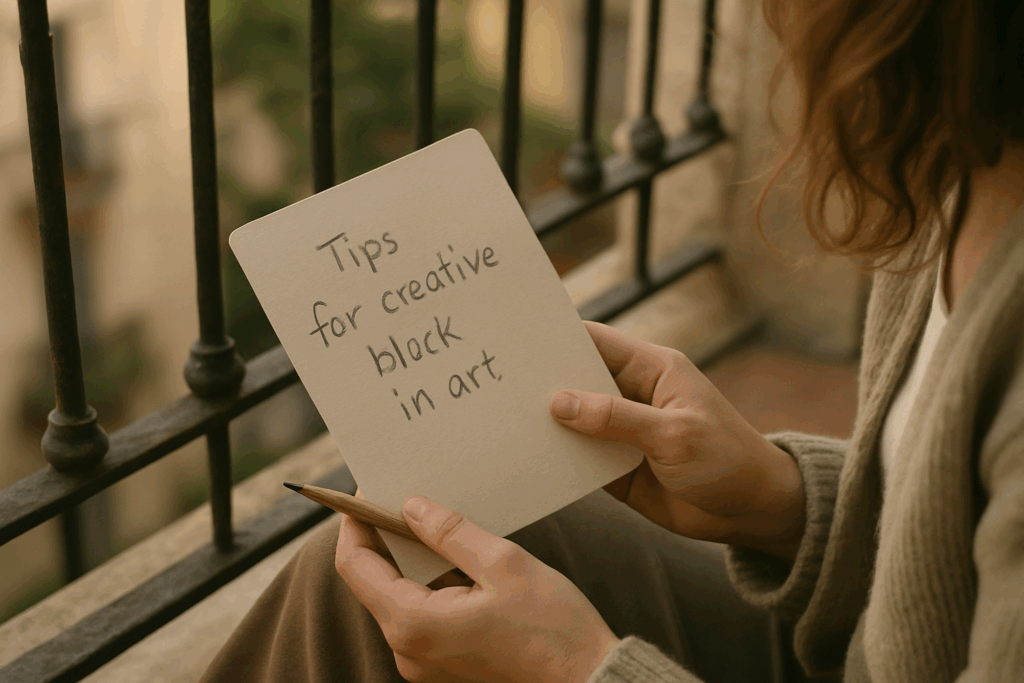 Tips
for creative
block
in art,